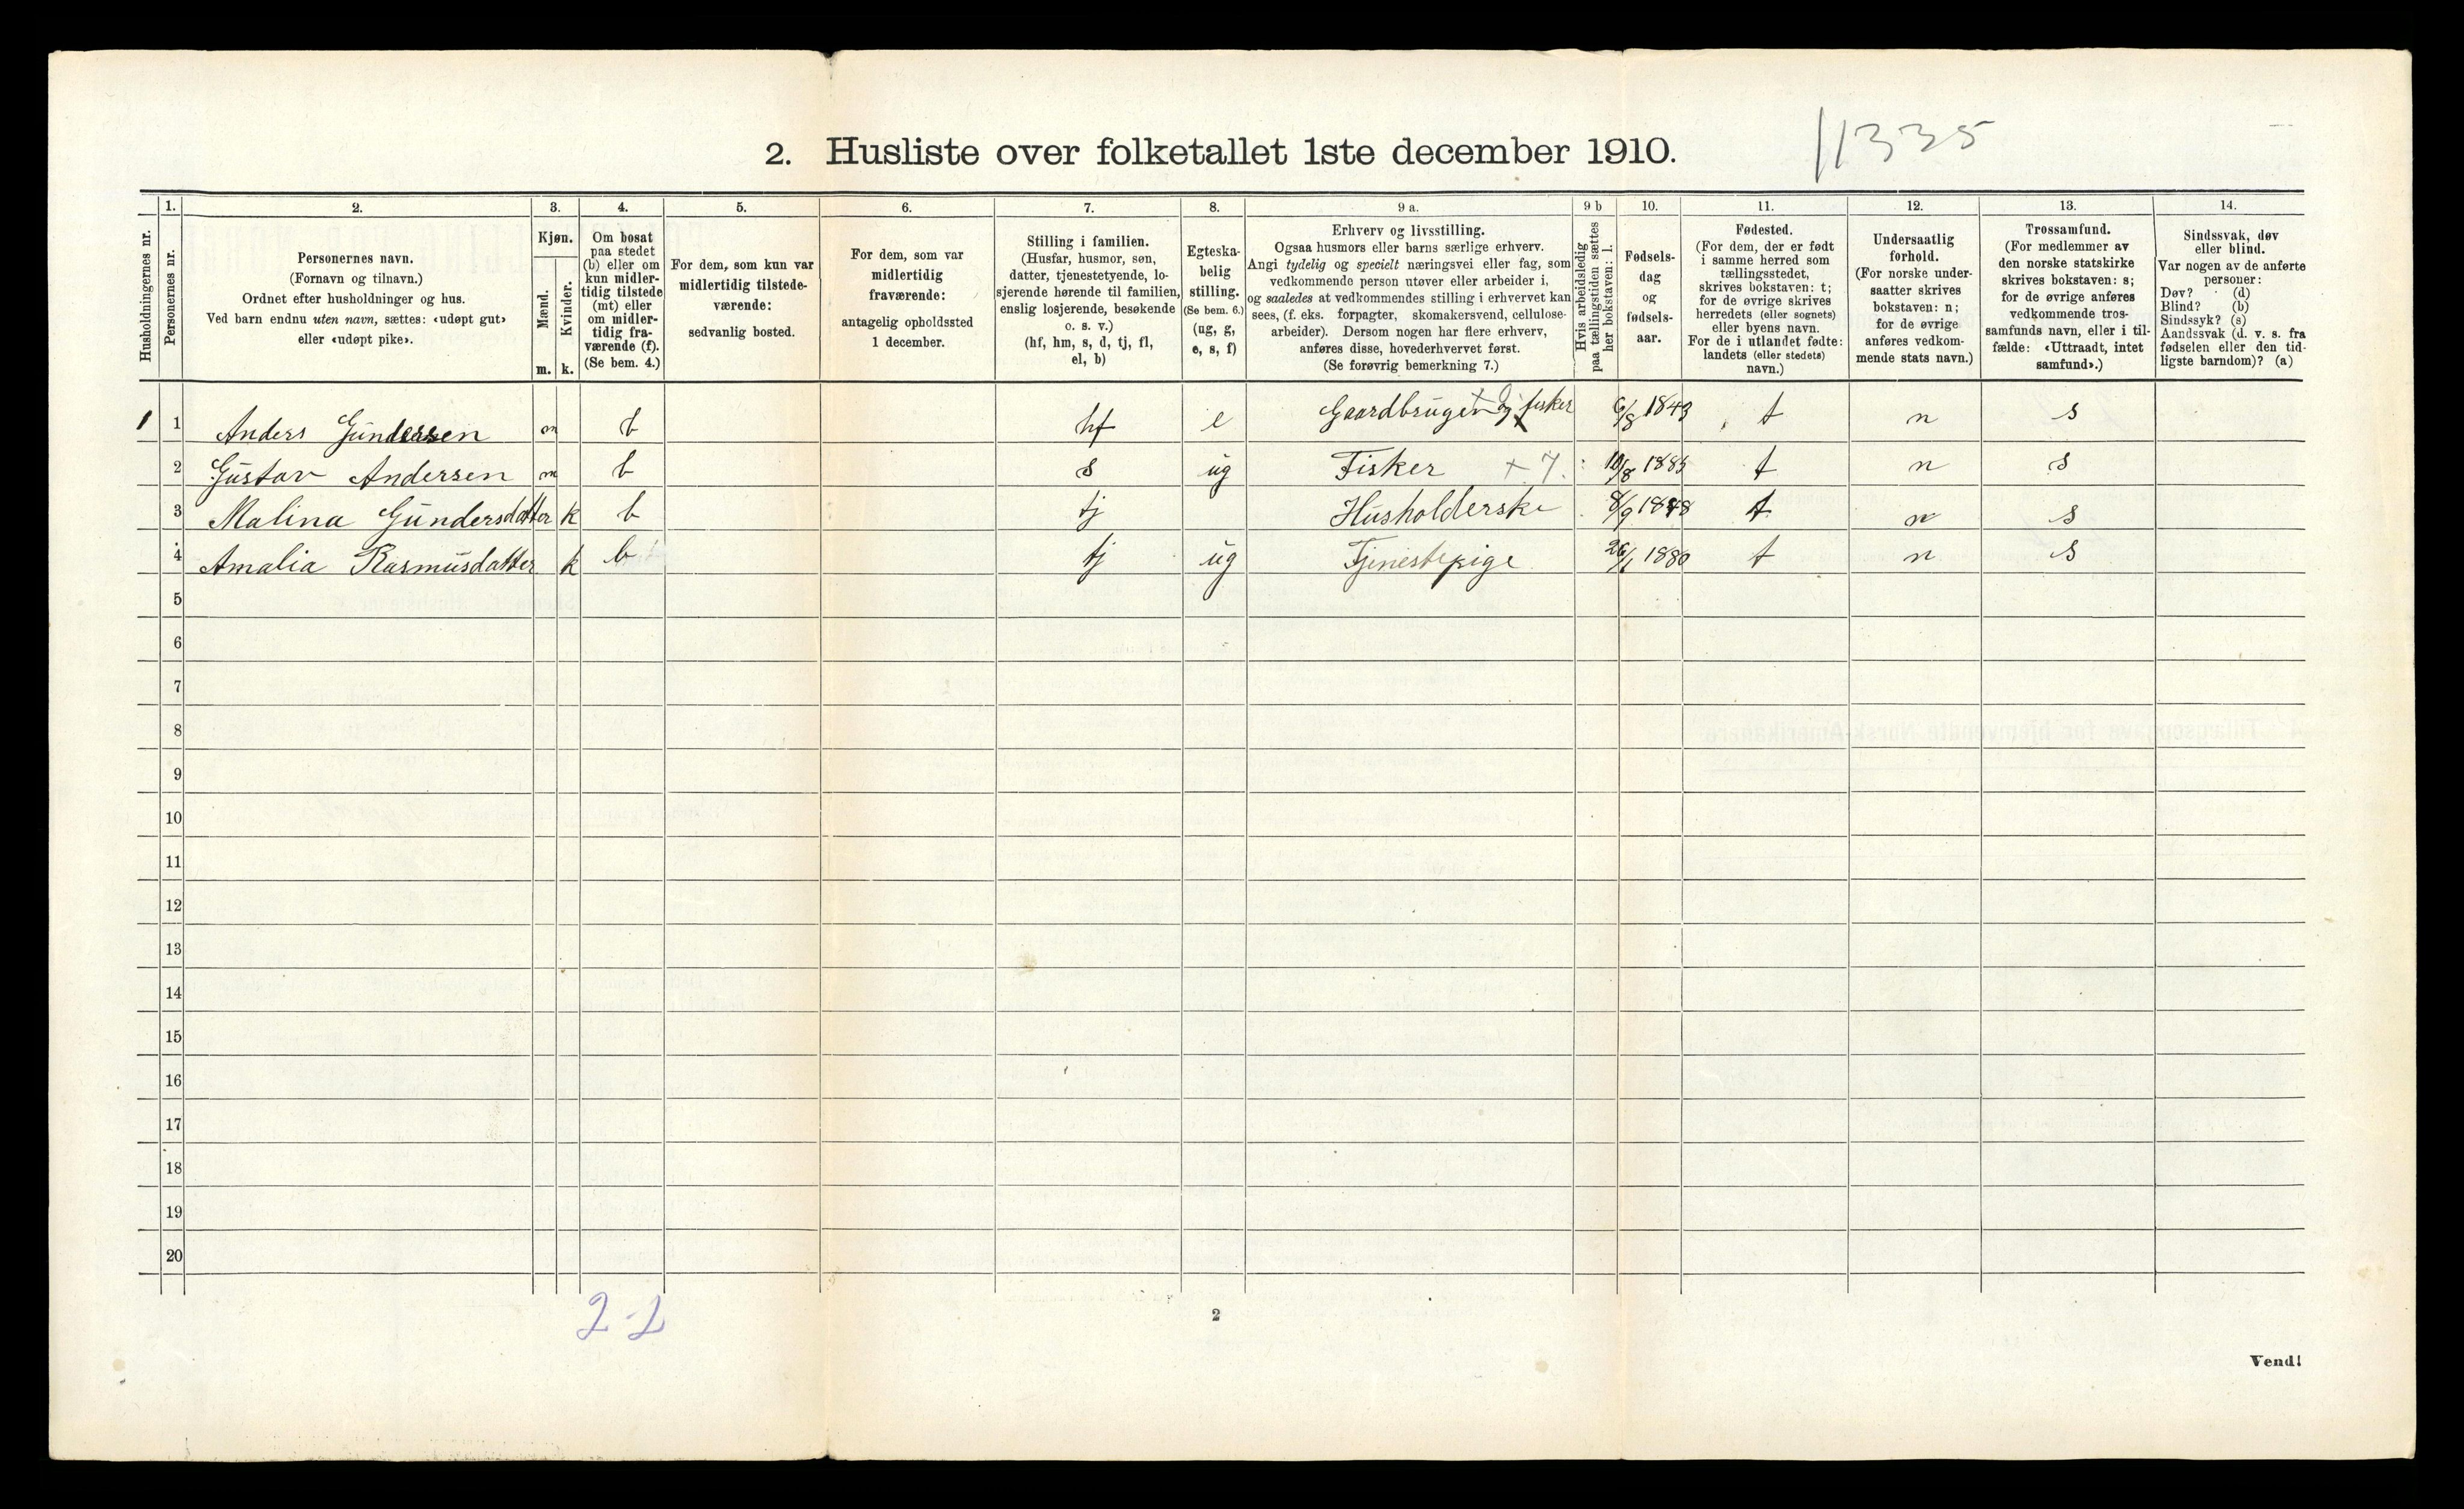 2. Husliste over folketallet 1ste december 1910.
11335
Husholdningernes nr.
1.
Personernes nr.
2.
Personernes navn.
(Fornavn og tilnavn.)
Ordnet efter husholdninger og hus.
Ved barn endnu uten navn, sættes: «udøpt gut»
eller «udøpt pike».
3.
Kjøn.
Mænd.
Kvinder.
m. k.
4.
Om bosat
paa stedet
(b) eller om
kun midler-
tidig tilstede
(mt) eller
om midler-
tidig fra-
værende (f).
(Se bem. 4.)
5.
For dem, som kun var
midlertidig tilstede-
værende:
sedvanlig bosted.
6.
For dem, som var
midlertidig
fraværende:
antagelig opholdssted
1 december.
7.
Stilling i familien.
(Husfar, husmor, søn,
datter, tjenestetyende, lo-
sjerende hørende til familien,
enslig losjerende, besøkende
o. s. v.)
(hf, hm, s, d, tj, fl,
el, b)
8.
Egteska-
belig
stilling.
(Se bem. 6.)
(ug, g,
e, s, f)
9 a.
Erhverv og livsstilling.
Ogsaa husmors eller barns særlige erhverv.
Angi tydelig og specielt næringsvei eller fag, som
vedkommende person utøver eller arbeider i,
og saaledes at vedkommendes stilling i erhvervet kan
sees, (f. eks. forpagter, skomakersvend, cellulose-
arbeider). Dersom nogen har flere erhverv,
anføres disse, hovederhvervet først.
(Se forøvrig bemerkning 7.)
9 b
Hvis arbeidsledig
paa tællingstiden sættes
her bokstaven: l.
10.
Fødsels-
dag
og
fødsels-
aar.
11.
Fødested.
(For dem, der er født
i samme herred som
tællingsstedet,
skrives bokstaven: t;
for de øvrige skrives
herredets (eller sognets)
eller byens navn.
For de i utlandet fødte:
landets (eller stedets)
navn.)
12.
Undersaatlig
forhold.
(For norske under-
saatter skrives
bokstaven: n;
for de øvrige
anføres vedkom-
mende stats navn.)
13.
Trossamfund.
(For medlemmer av
den norske statskirke
skrives bokstaven: s;
for de øvrige anføres
vedkommende tros-
samfunds navn, eller i til-
fælde: «Uttraadt, intet
samfund».)
14.
Sindssvak, døv
eller blind.
Var nogen av de anførte
personer:
Døv? (d)
Blind? (b)
Sindssyk? (s)
Aandssvak (d. v. s. fra
fødselen eller den tid-
ligste barndom)? (a)
1 1 Anders Gundersen m b hf e Gaardbruger og fisker 6/8 1843 t n s
2 Gustav Andersen m b s ug Fisker + 7. 10/8 1885 t n s
3 Malina Gundersdatter k b tj Husholderske 8/9 1848 t n s
4 Amalia Rasmusdatter k b tj ug Tjenestepige 26/1 1880 t n s
5
6
7
8
9
10
11
12
13
14
15
16
17
18
19
20
2-2
2
Vend!